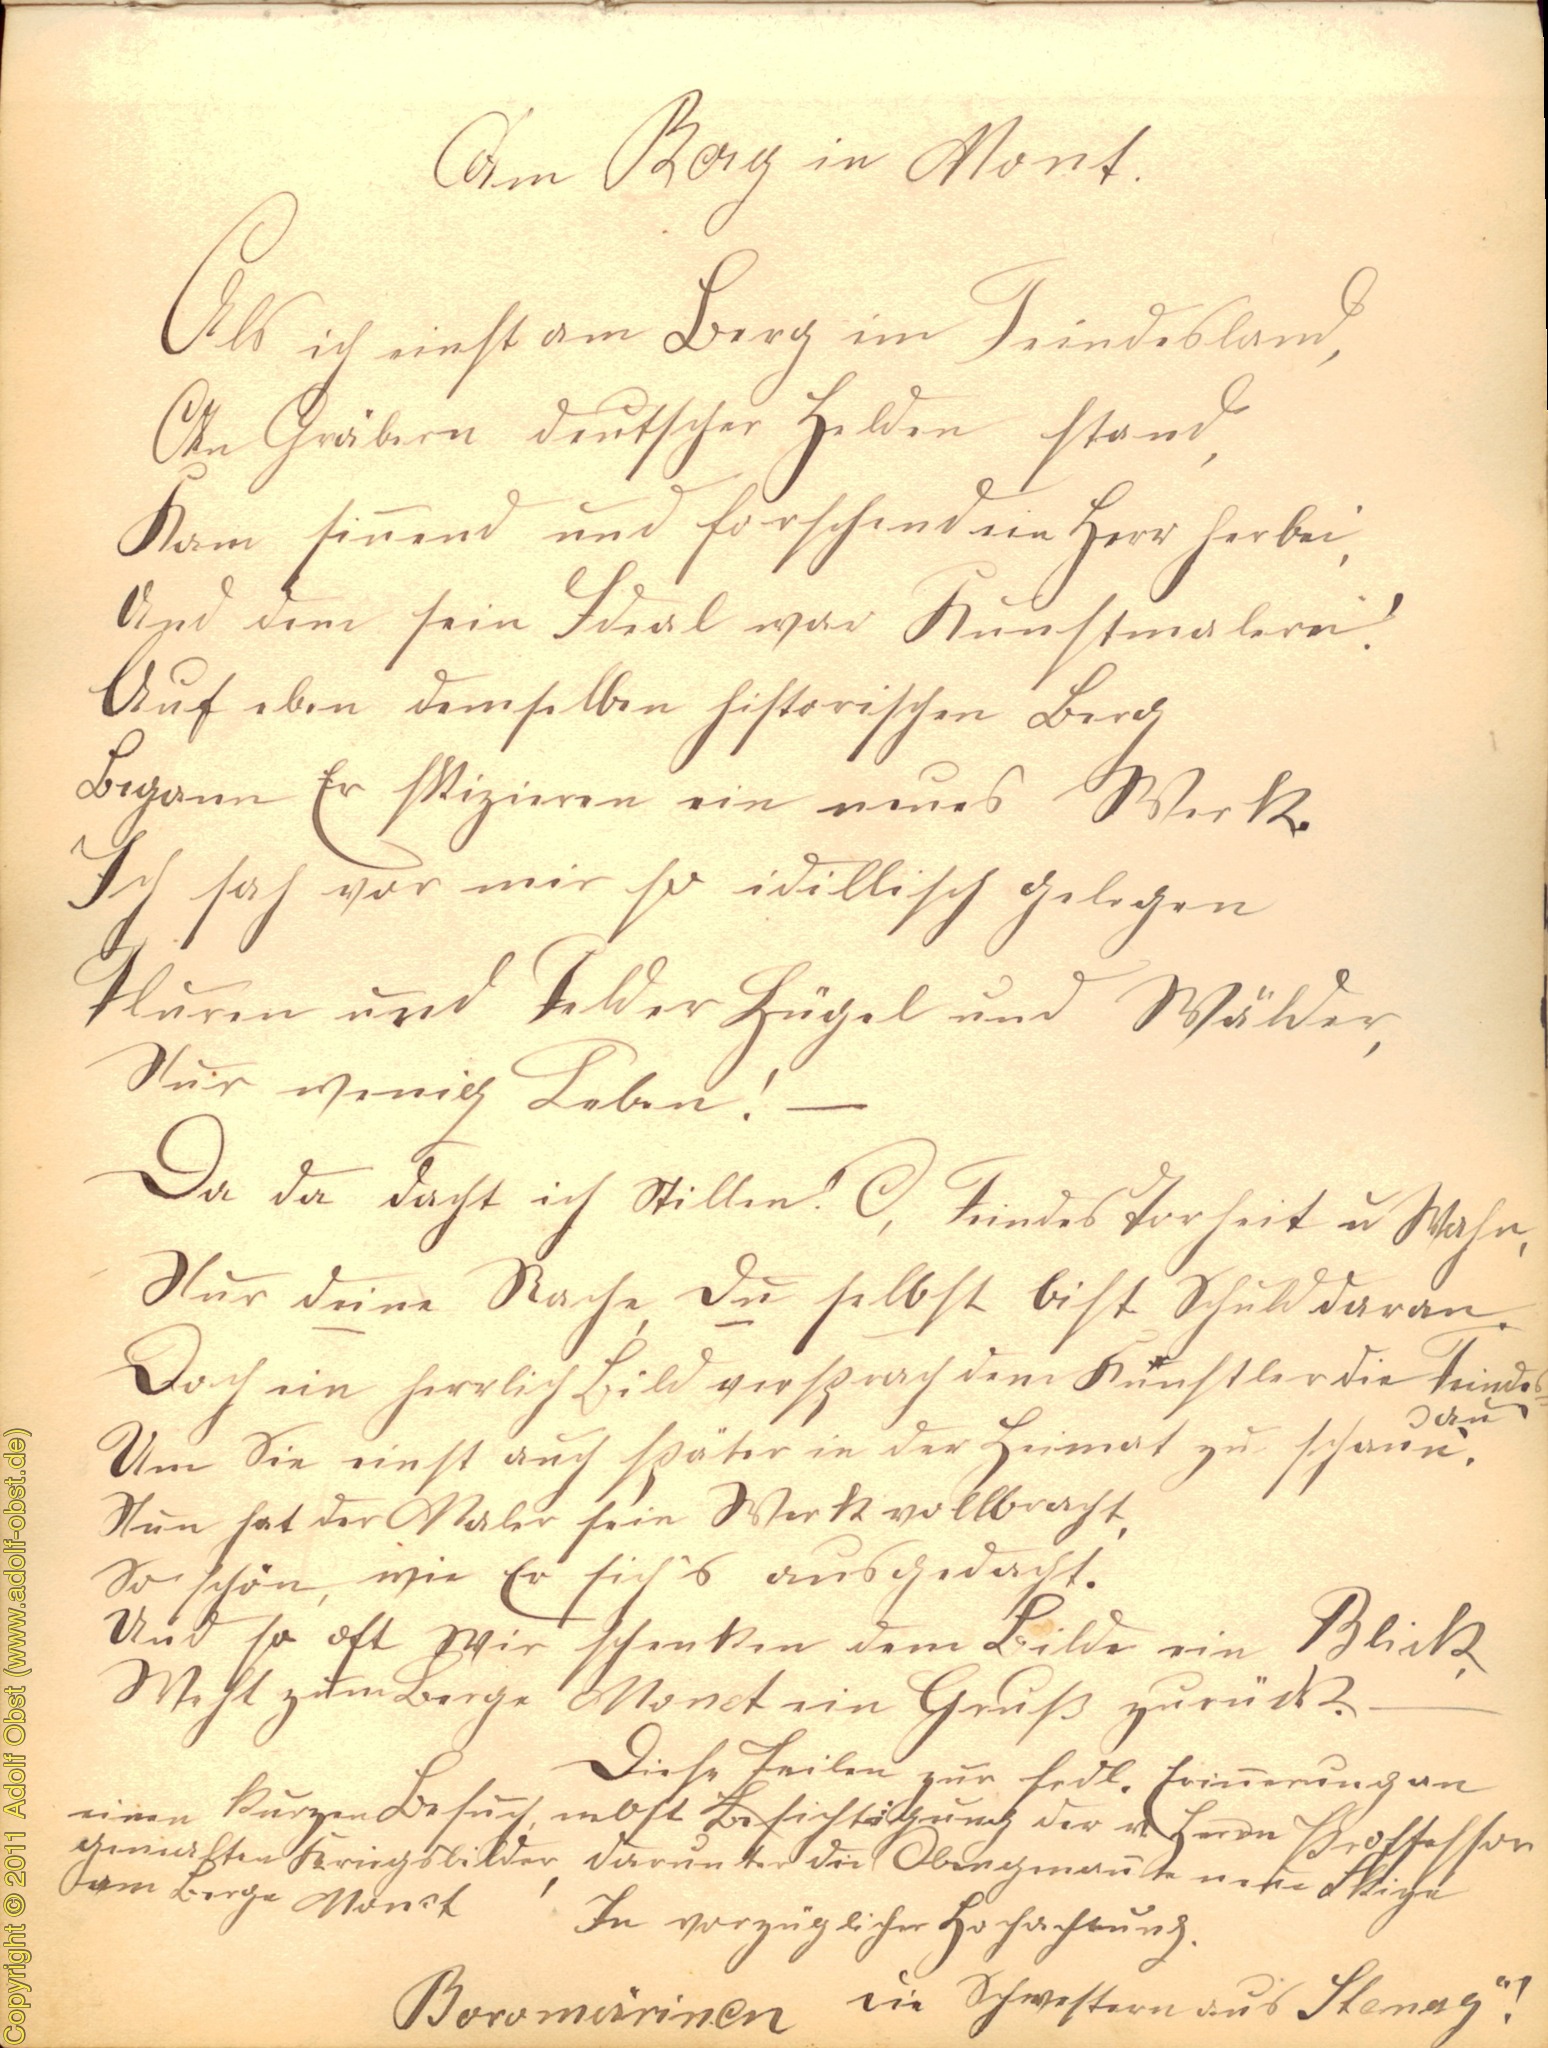 Am Berg in Mont.
Als ich einst am Berg im Feindesland,
An Gräbern deutscher Helden stand,
Kam sinnend und forschend ein Herr herbei,
Und dem sein Ideal war Kunstmalerei!
Auf eben demselben historischen Berg
Begann Er skizieren ein neues Werk.
Ich sah vor mir so idillisch gelegen
Fluren und Felder Hügel und Wälder,
Nur wenig Leben! —
Da da dacht ich Stillen! O, Feindes Torheit u Wahn,
Nur deine Rache, Du selbst bist Schuld daran.
Doch ein herrlich Bild versprach dem Künstler die Feindes=
au
Um Sie einst auch später in der Heimat zu schaun.
Nun hat der Maler sein Werk vollbracht,
So schön, wie Er sich's ausgedacht.
Und so oft Wir schenken dem Bilde ein Blick,
Weht zum Berge Monet ein Gruß zurück. —
Diese Zeilen zur frdl. Erinnerung an
einen kurzen Besuch, nebst Besichtigung der v. Herrn Proffessor
gemalten Kriegsbilder, darunter die Obengenannte neue Skize
am Berge Monet
In vorzüglicher Hochachtung.
Boromärinen die Schwestern aus Stenay"!
Copyright © 2011 Adolf Obst (www.adolf-obst.de)